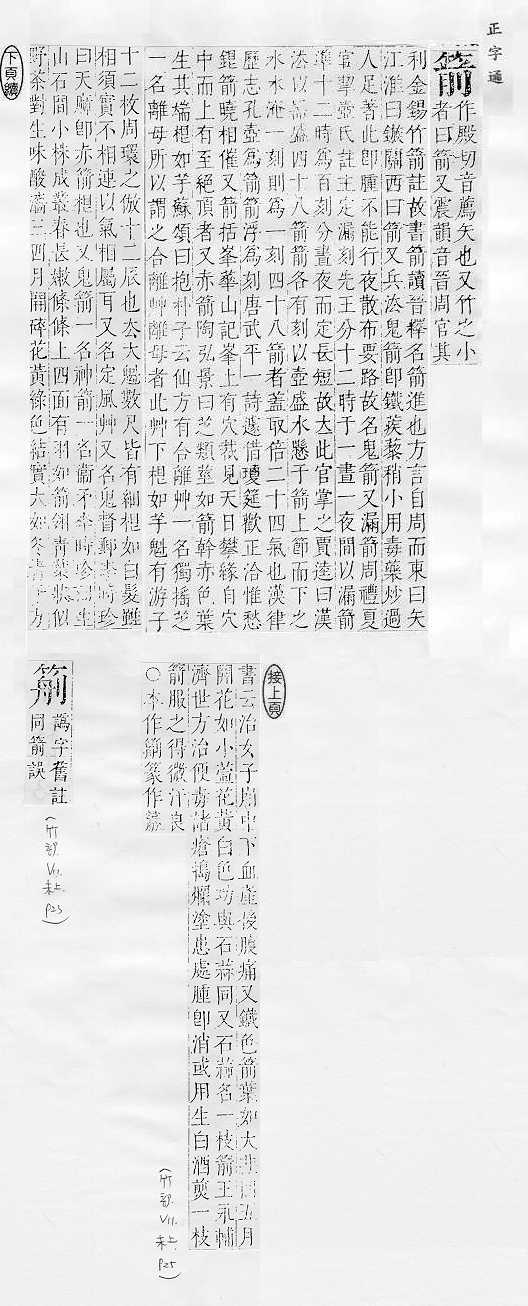 正字通
箭
作殿切音薦矢也又竹之小
者曰箭又震韻音晉周官其
利金錫竹箭註故書箭讀晉釋名箭進也方言自周而東曰矢
江淮曰鏃關西曰箭又兵法鬼箭卽鐵蒺藜稍小用毒藥炒過
人足著此卽腫不能行夜散布要路故名鬼箭又漏箭周禮夏
官挈壺氏註主定漏刻先王分十二時于一晝一夜間以漏箭
準十二時爲百刻分晝夜而定長短故大此官掌之賈逵曰漢
法以器盛四十八箭箭各有刻以壺盛水懸于箭上節而下之
水水淹一刻則爲一刻四十八箭者蓋取倍二十四氣也漢律
歷志孔壺爲箭箭浮爲刻唐武平一詩遽惜瓊筵歡正洽惟愁
銀箭曉相催又箭括峯華山記峯上有穴纔見天日攀緣自穴
中而上有至絕頂者又赤箭陶弘景曰芝類莖如箭幹赤色葉
生其端根如芋蘇頌曰抱朴子云仙方有合離艸一名獨搖芝
一名離母所以謂之合離艸離母者此艸下根如芋魁有游子
十二枚周環之倣十二辰也去大魁數尺皆有細根如白髮雖
相須實不相連以氣相屬耳又名定風艸又名鬼督郵李時珍
曰天麻卽赤箭根也又鬼箭一名神箭一名衞矛李時珍曰生
山石間小株成叢春長嫩條條上四面有羽如箭翎青葉狀似
野茶對生味酸澀三四月開碎花黃綠色結實大如冬青子方
下頁續
接上頁
書云治女子崩中下血產後腹痛又鐵色箭葉如大韭四五月
開花如小萱花黃白色功與石蒜同又石蒜名一枝箭王永輔
濟世方治便毒諸瘡擣爛塗患處腫卽消或用生白酒煎一枝
箭服之得微汗良
○本作箭篆作
(竹部 V11. 未上. P25)
𥮖
譌字舊註
同箭誤
(竹部 V11. 未上. P23)